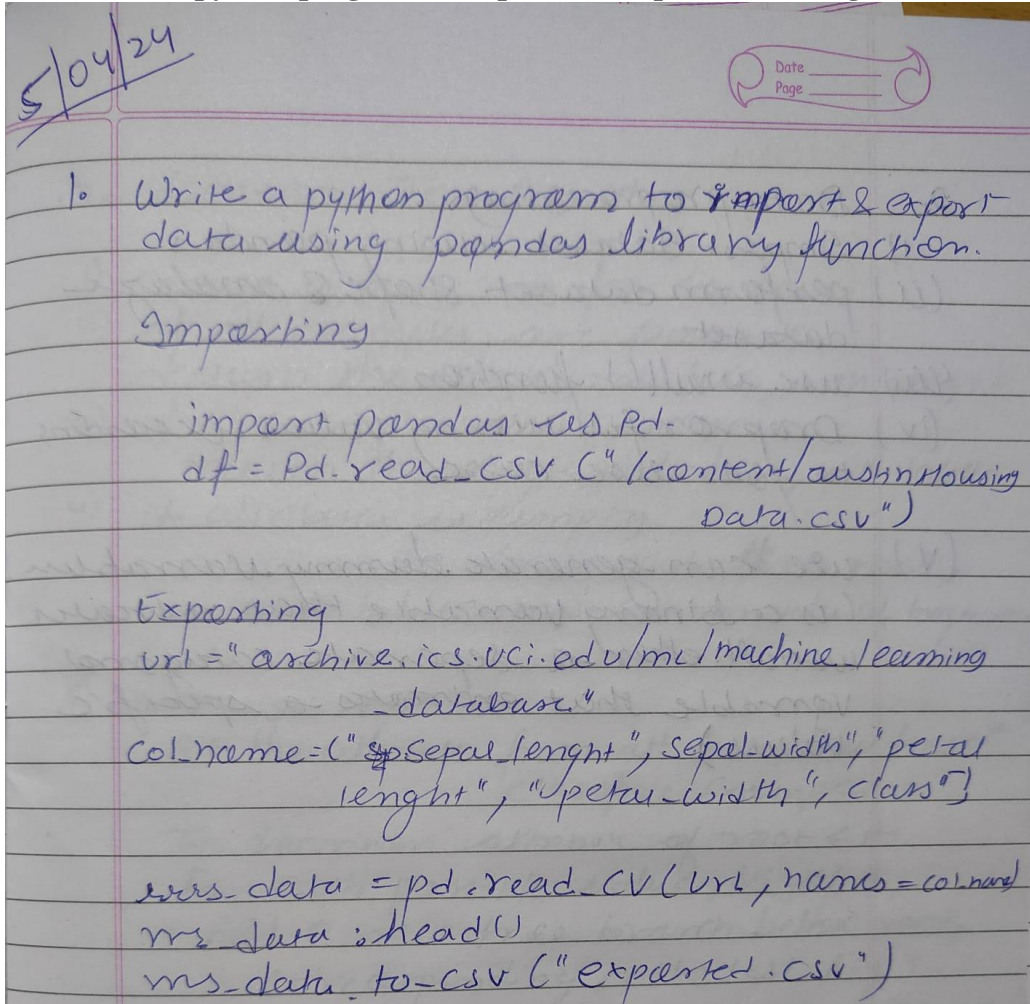 5/04/24
Date
Page
1. Write a python program to import & export
data using pandas library function.
Importing
import pandas as pd.
df = Pd.read_CSV ("/content/austinHousing
Data.csv")
Exporting
url = "archive.ics.uci.edu/ml/machine_learning
_database"
Col_name=("sepal_lenght", sepal-width", "petal
lenght", "petal-width", class"]
data = pd.read_CV(url, names = col_name)
data.head()
data.to-csv ("exported.csv")